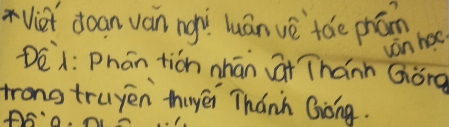 *Viết đoạn văn nghị luận về tác phẩm
văn học.
Đề 1: Phân tích nhân vật Thánh Gióng
trong truyền thuyết Thánh Gióng.